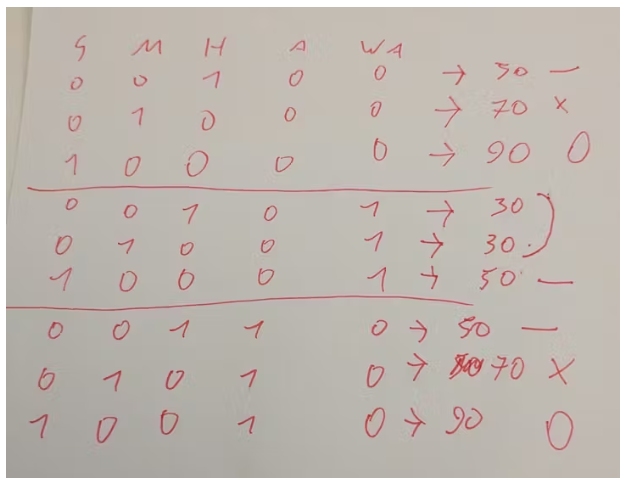 S M H A WA
0 0 1 0 0 → 50 —
0 1 0 0 0 → 70 x
1 0 0 0 0 → 90 O
0 0 1 0 1 → 30
0 1 0 0 1 → 30
1 0 0 0 1 → 50 —
0 0 1 1 0 → 50 —
0 1 0 1 0 → 70 x
1 0 0 1 0 → 90 O